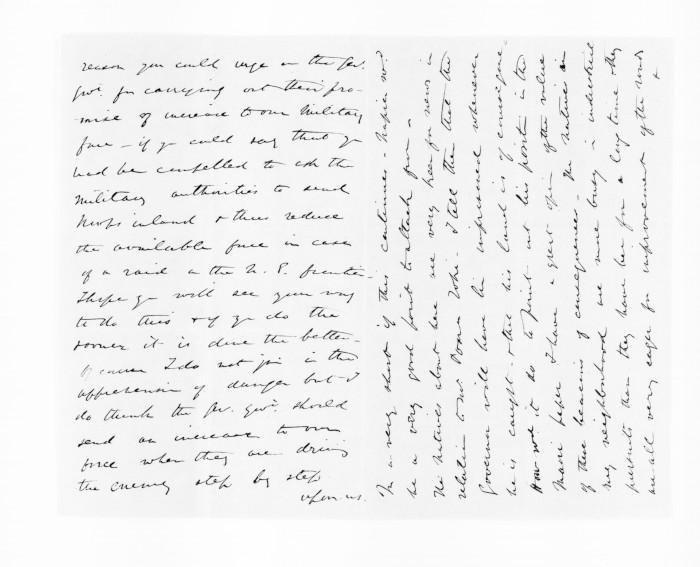 reason you could urge on the Gen.
Govt. for carrying out their pro-
-mise of increase to our Military
force - if yo could say that yo
wod be compelled to ask the
Military authorities to send
troops inland & thus reduce
the available force in case
of a raid on the N. P. frontier
I hope yo will see your way
to do this & if yo do the
sooner it is done the better -
Of course I do not join in the
apprehension of danger but I
do think the Gen. Govt. should
send an increase to our
force when they are driving
the enemy step by step
upon us.
in a very short if this continues - Napier wd.
be a very good point to attack from -
The natives about here are very keen for news in
relation to and - I tell them that the
Governor will have him imprisoned whenever
he is caught - & that his land is of consequence -
How wod it do to point out his position in the
Maori paper I have a great opn. of the value
of these beacons of consequences - The natives in
my neighborhood are more busy in industrial
pursuits than they have been for a long time - they
are all very eager for improvement of the roads
&